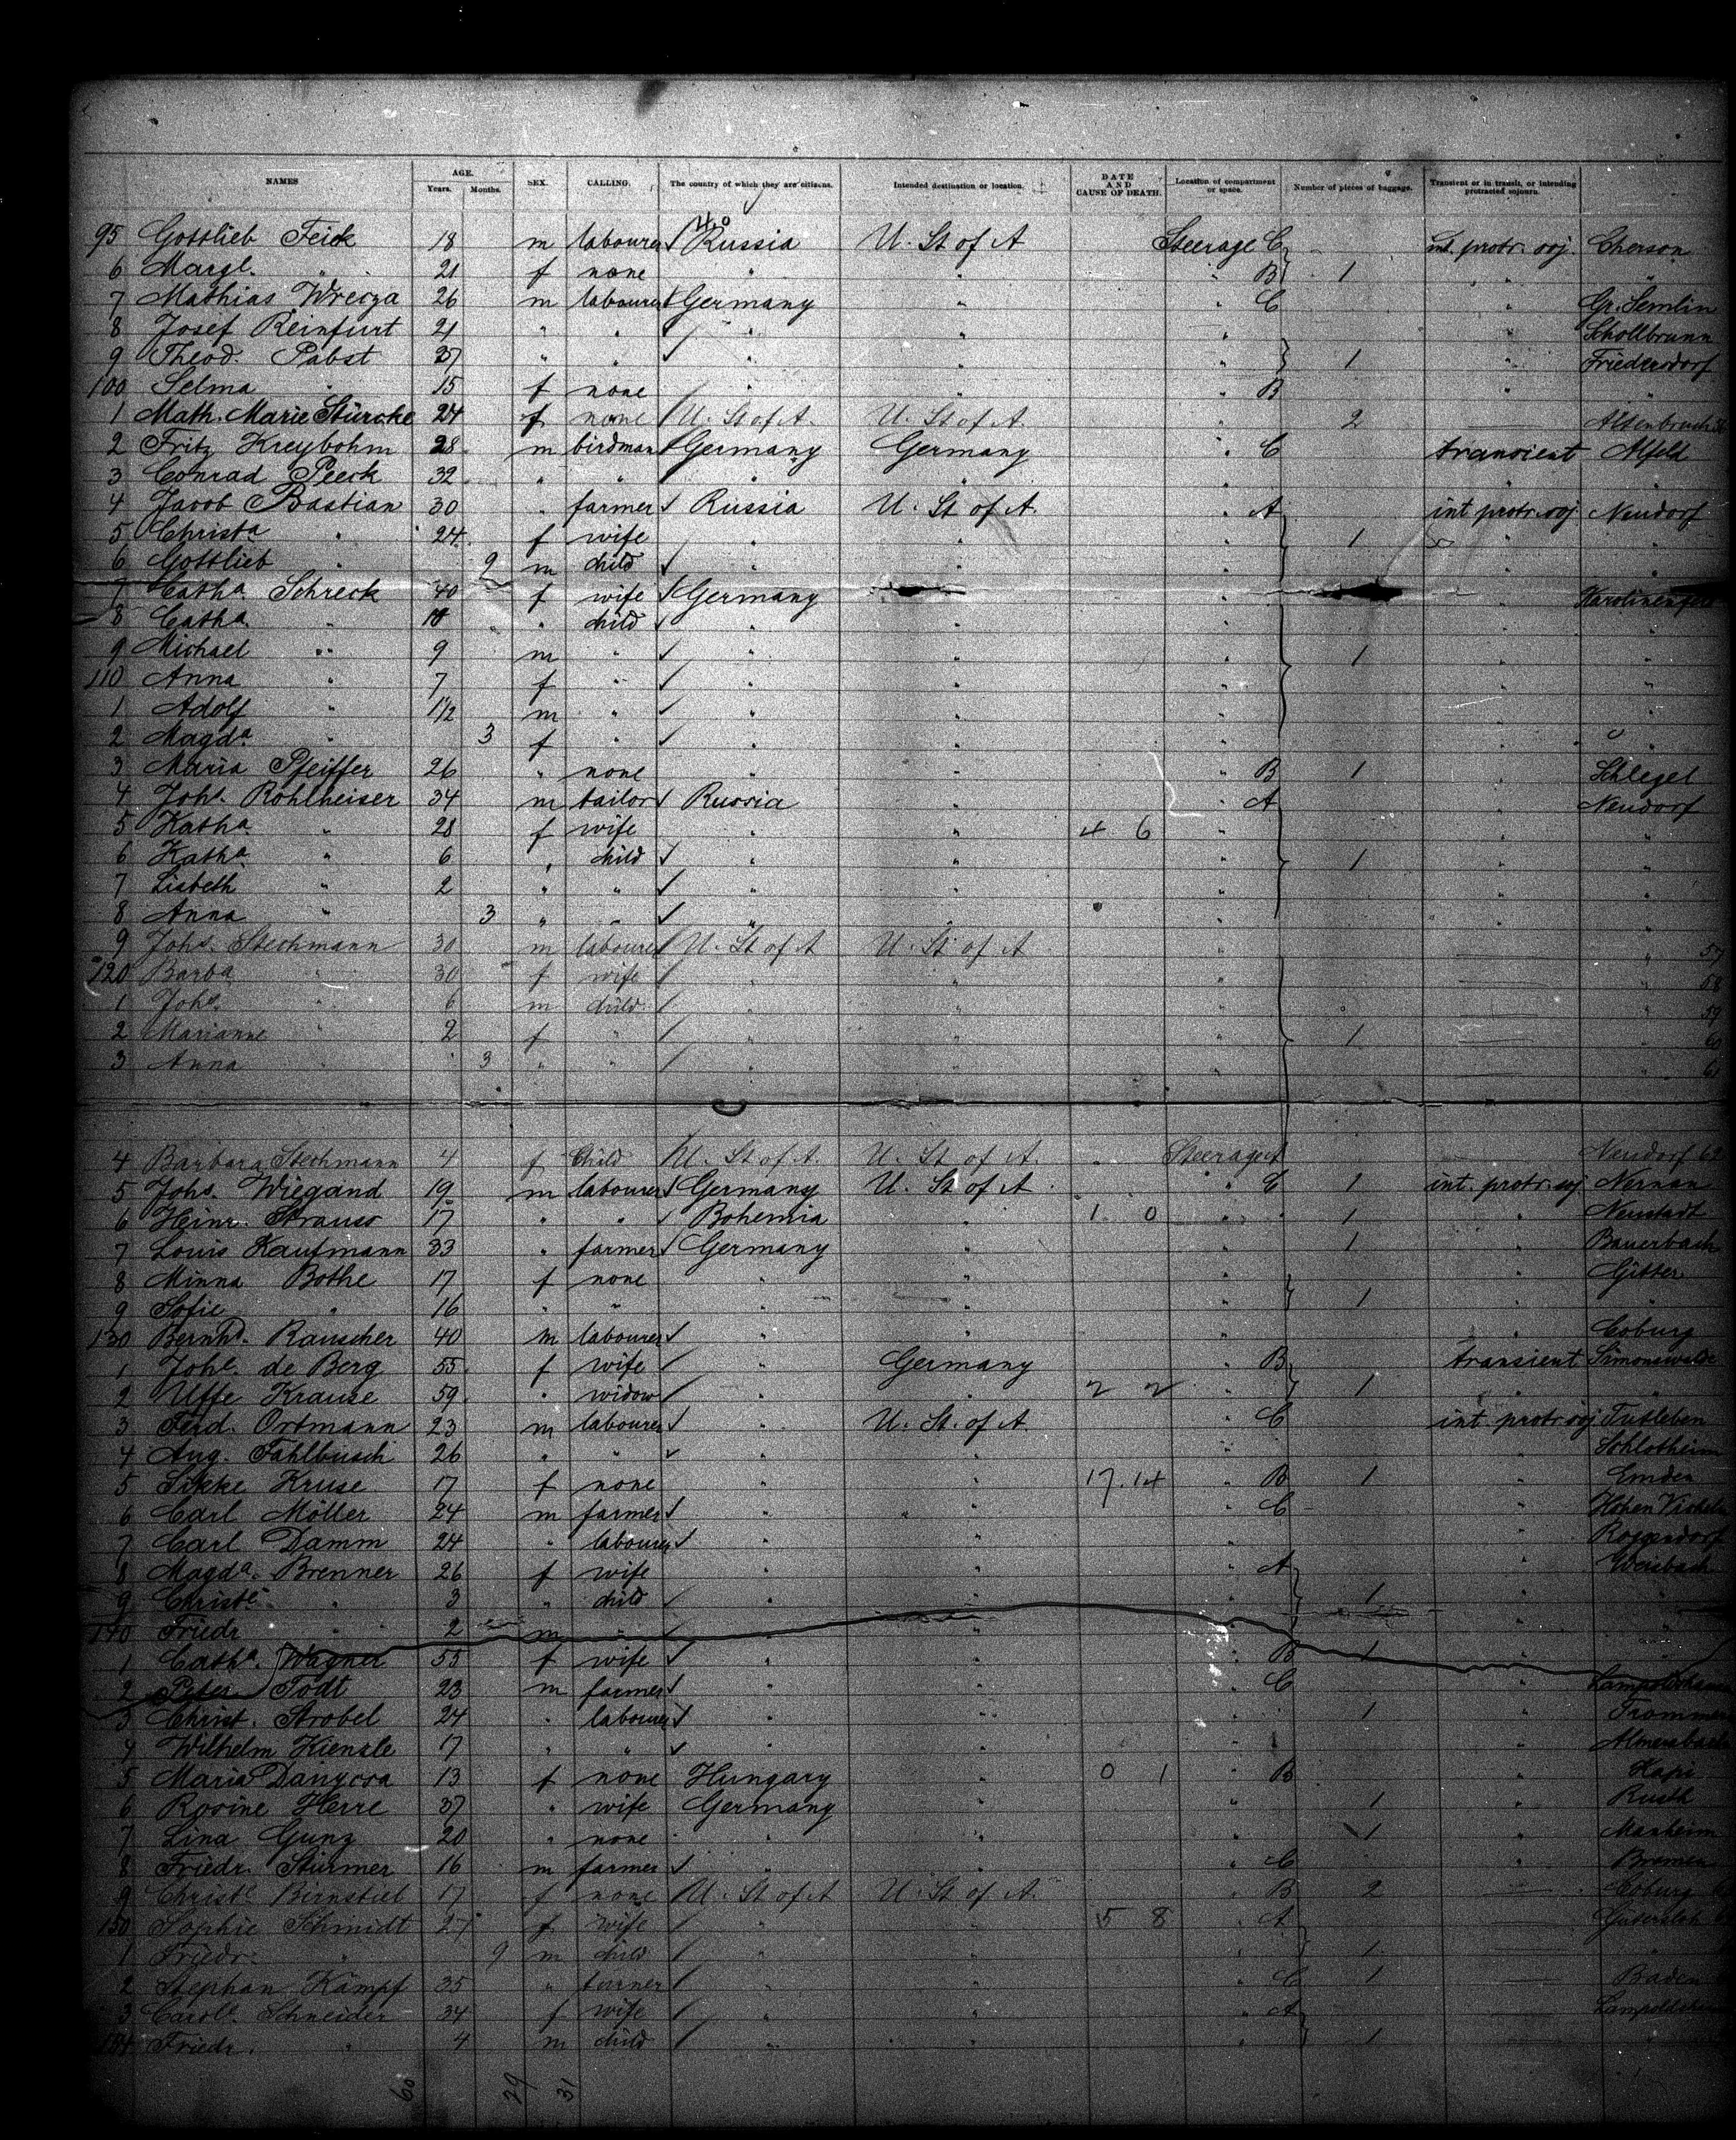 NAMES AGE. Years. Months. SEX. CALLING. The country of which they are citizens. Intended destination or location. DATE AND CAUSE OF DEATH. Location of compartment or space. Number of pieces of baggage. Transient or in transit, or intending protracted sojourn.
95 Gottlieb Feick 18 m labourer √ Russia U. St of A Steerage C int. protr. soj. Cherson
6 Margt. " 21 f none " " " B 1 " "
7 Mathias Wrecza 26 m labourer √ Germany " " C " Gr. Semlin
8 Josef Reinfurt 21 " " √ " " " " Schollbrunn
9 Theod. Pabst 37 " " √ " " " 1 " Friedersdorf
100 Selma " 15 f none " " " B "
1 Math. Marie Stürcke 24 f none / U. St of A. U. St of A. " 2 Altenbruch
2 Fritz Kreybohm 28 m birdman √ Germany Germany " C transient Alfeld
3 Conrad Peeck 32 " " " " " " "
4 Jacob Bastian 30 " farmer √ Russia U. St of A. " A int protr. soj Neudorf
5 Christa " 24 f wife " " " 1 " "
6 Gottlieb " 9 m child √ " " " " "
7 Catha. Schreck 40 f wife √ Germany " " " Karolinenfeld
8 Catha. " " child √ " " " " "
9 Michael " 9 m " √ " " " 1 " "
110 Anna " 7 f " √ " " " " "
1 Adolf " 1½ m " √ " " " " "
2 Magda " 3 f " √ " " " " "
3 Maria Pfeiffer 26 " none " " " B 1 " Schlegel
4 Johs. Rohlheiser 34 m tailor √ Russia " " A " Neudorf
5 Katha " 28 f wife " " 4 6 " " "
6 Katha " 6 " child √ " " " 1 " "
7 Lisbeth " 2 " " √ " " " " "
8 Anna " 3 " " √ " " " " "
9 Johs. Stechmann 30 m labourer / U. St of A U. St of A " " 57
120 Barba " 30 f wife / " " " " 58
1 Johs. " 6 m child / " " " " 59
2 Marianne " 2 f " / " " " 1 " 60
3 Anna " 3 " " / " " " " 61
4 Barbara Stechmann 4 f Child / U. St of A. U. St of A. Steerage A Neudorf 62
5 Johs. Wiegand 19 m labourer √ Germany U. St of A " C 1 int. protr. soj
6 Heinr. Strauss 17 " " √ Bohemia " 1 0 " " 1 " Neustadt
7 Louis Kaufmann 33 " farmer √ Germany " " 1 " Bauerbach
8 Minna Bothe 17 f none " " " " Gitter
9 Sofie " 16 " " " " " 1 " "
130 Bernhd. Rauscher 40 m labourer √ " " " " Coburg
1 Johe. de Berg 55 f wife / " Germany " B transient Simonswolde
2 Uffe Krause 59 " widow / " " 2 2 " 1 " "
3 Ferd. Ortmann 23 m labourer √ " U. St. of A. " C int. protr soj Tutleben
4 Aug. Fahlbusch 26 " " √ " " " " Schlotheim
5 Sikke Kruse 17 f none " " 17.14 " B 1 " Emden
6 Carl Möller 24 m farmer √ " " " C " Hohen
7 Carl Damm 24 " labourer √ " " " " Roggendorf
8 Magda. Brenner 26 f wife " " " A " Weisbach
9 Christe. " 3 " child / " " " 1 " "
140 Friedr " 2 m " / " " " " "
1 Catha. Wagner 55 f wife √ " " " B 1 " "
2 Peter Todt 23 m farmer √ " " " C "
3 Christ. Strobel 24 " labourer √ " " " 1 " Frommern
4 Wilhelm Kienzle 17 " " √ " " " " Almersbach
5 Maria 13 f none Hungary " 0 1 " B " Kapi
6 Rosine Herre 37 " wife Germany " " 1 "
7 Lina Gunz 20 " none " " " 1 "
8 Friedr. Stürmer 16 m farmer √ " " " C " Bremen
9 Christe. Birnstiel 17 f none / U. St of A U. St of A. " B 2 Coburg
150 Sophie Schmidt 27 f wife / " " 5 8 " A Gütersloh
1 Friedr. " 9 m child / " " " 1 "
2 Stephan Kämpf 35 " turner / " " " C 1 Baden
3 Carola. Schneider 34 f wife " " " A
154 Friedr. " 4 m child / " " " 1
60 29 31